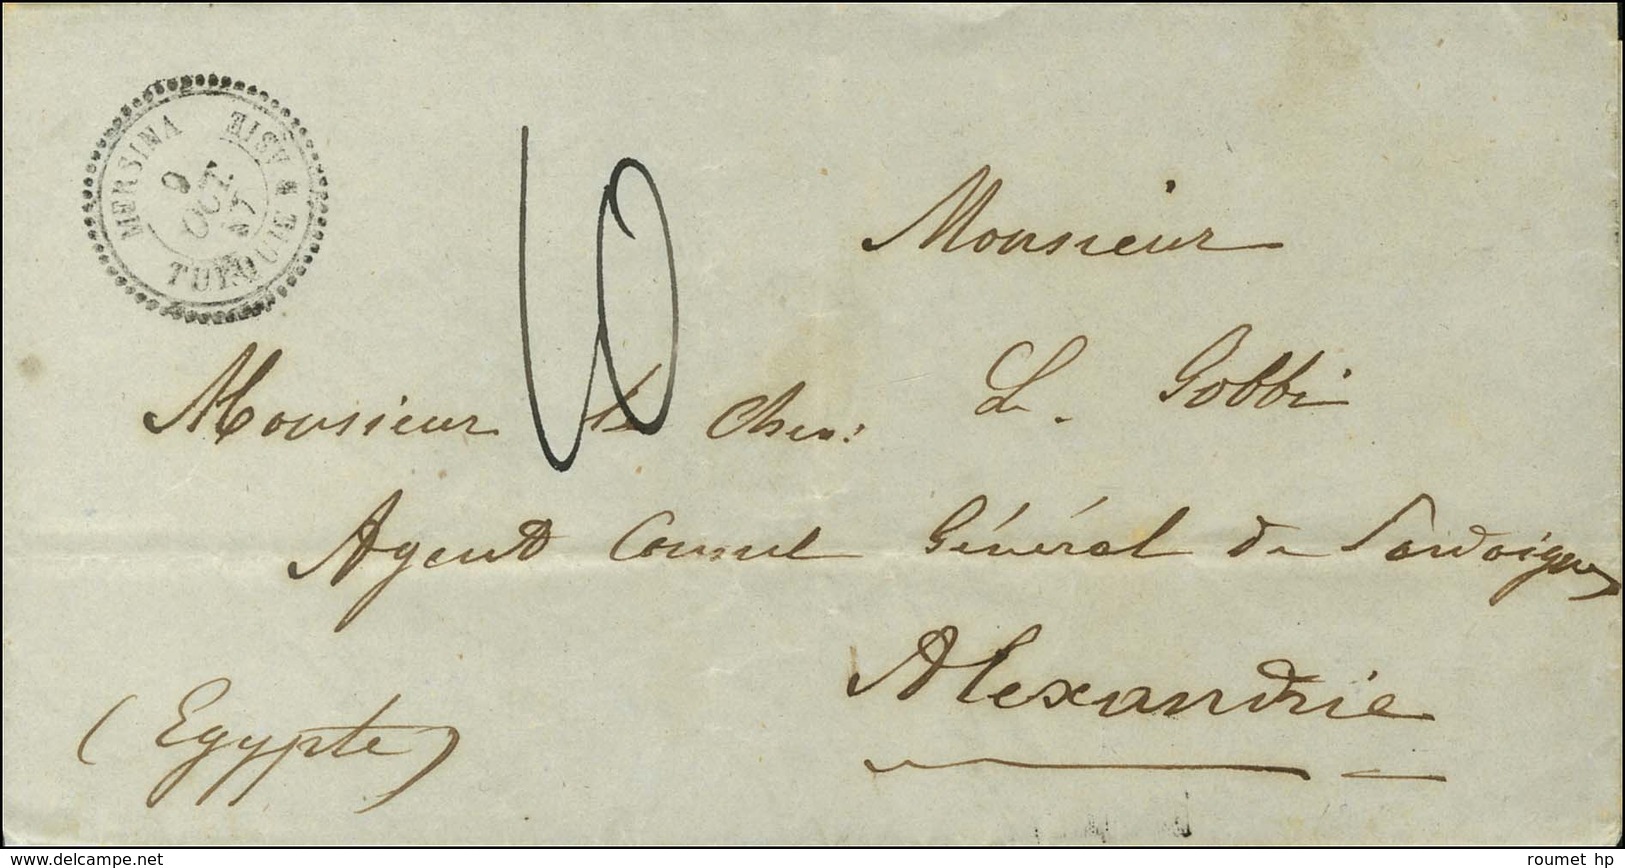 MERSINA
TURQUIE D'ASIE
9
OCT
57
10
Monsieur
Monsieur le Chev: L. Gobbi
Agent Consul Général de Sardaigne
Alexandrie
(Egypte)
delcampe.com
roumet hp